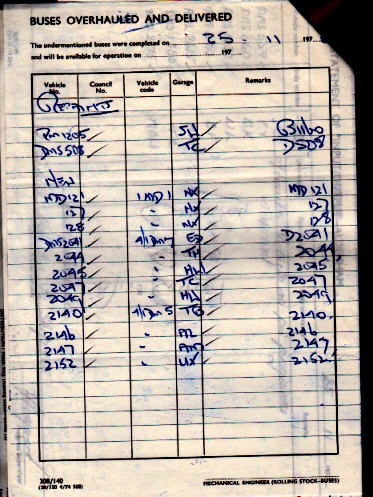 BUSES OVERHAULED AND DELIVERED
The undermentioned buses were completed on 25 - 11 197
and will be available for operation on 197
Vehicle No. Council No. Vehicle code Garage Remarks
RM1205 SH
DMS508 TC D508
NEW
MD121 1MD1 NX MD121
127 " NX 127
128 " NX 128
DMS2041 D2041
2044 " TH 2044
2045 " HW 2045
2047 " TC 2047
2049 " HW 2049
2140 2140
2146 " AL 2146
2147 " 2147
2152 " UX 2152
308/140
MECHANICAL ENGINEER (ROLLING STOCK—BUSES)